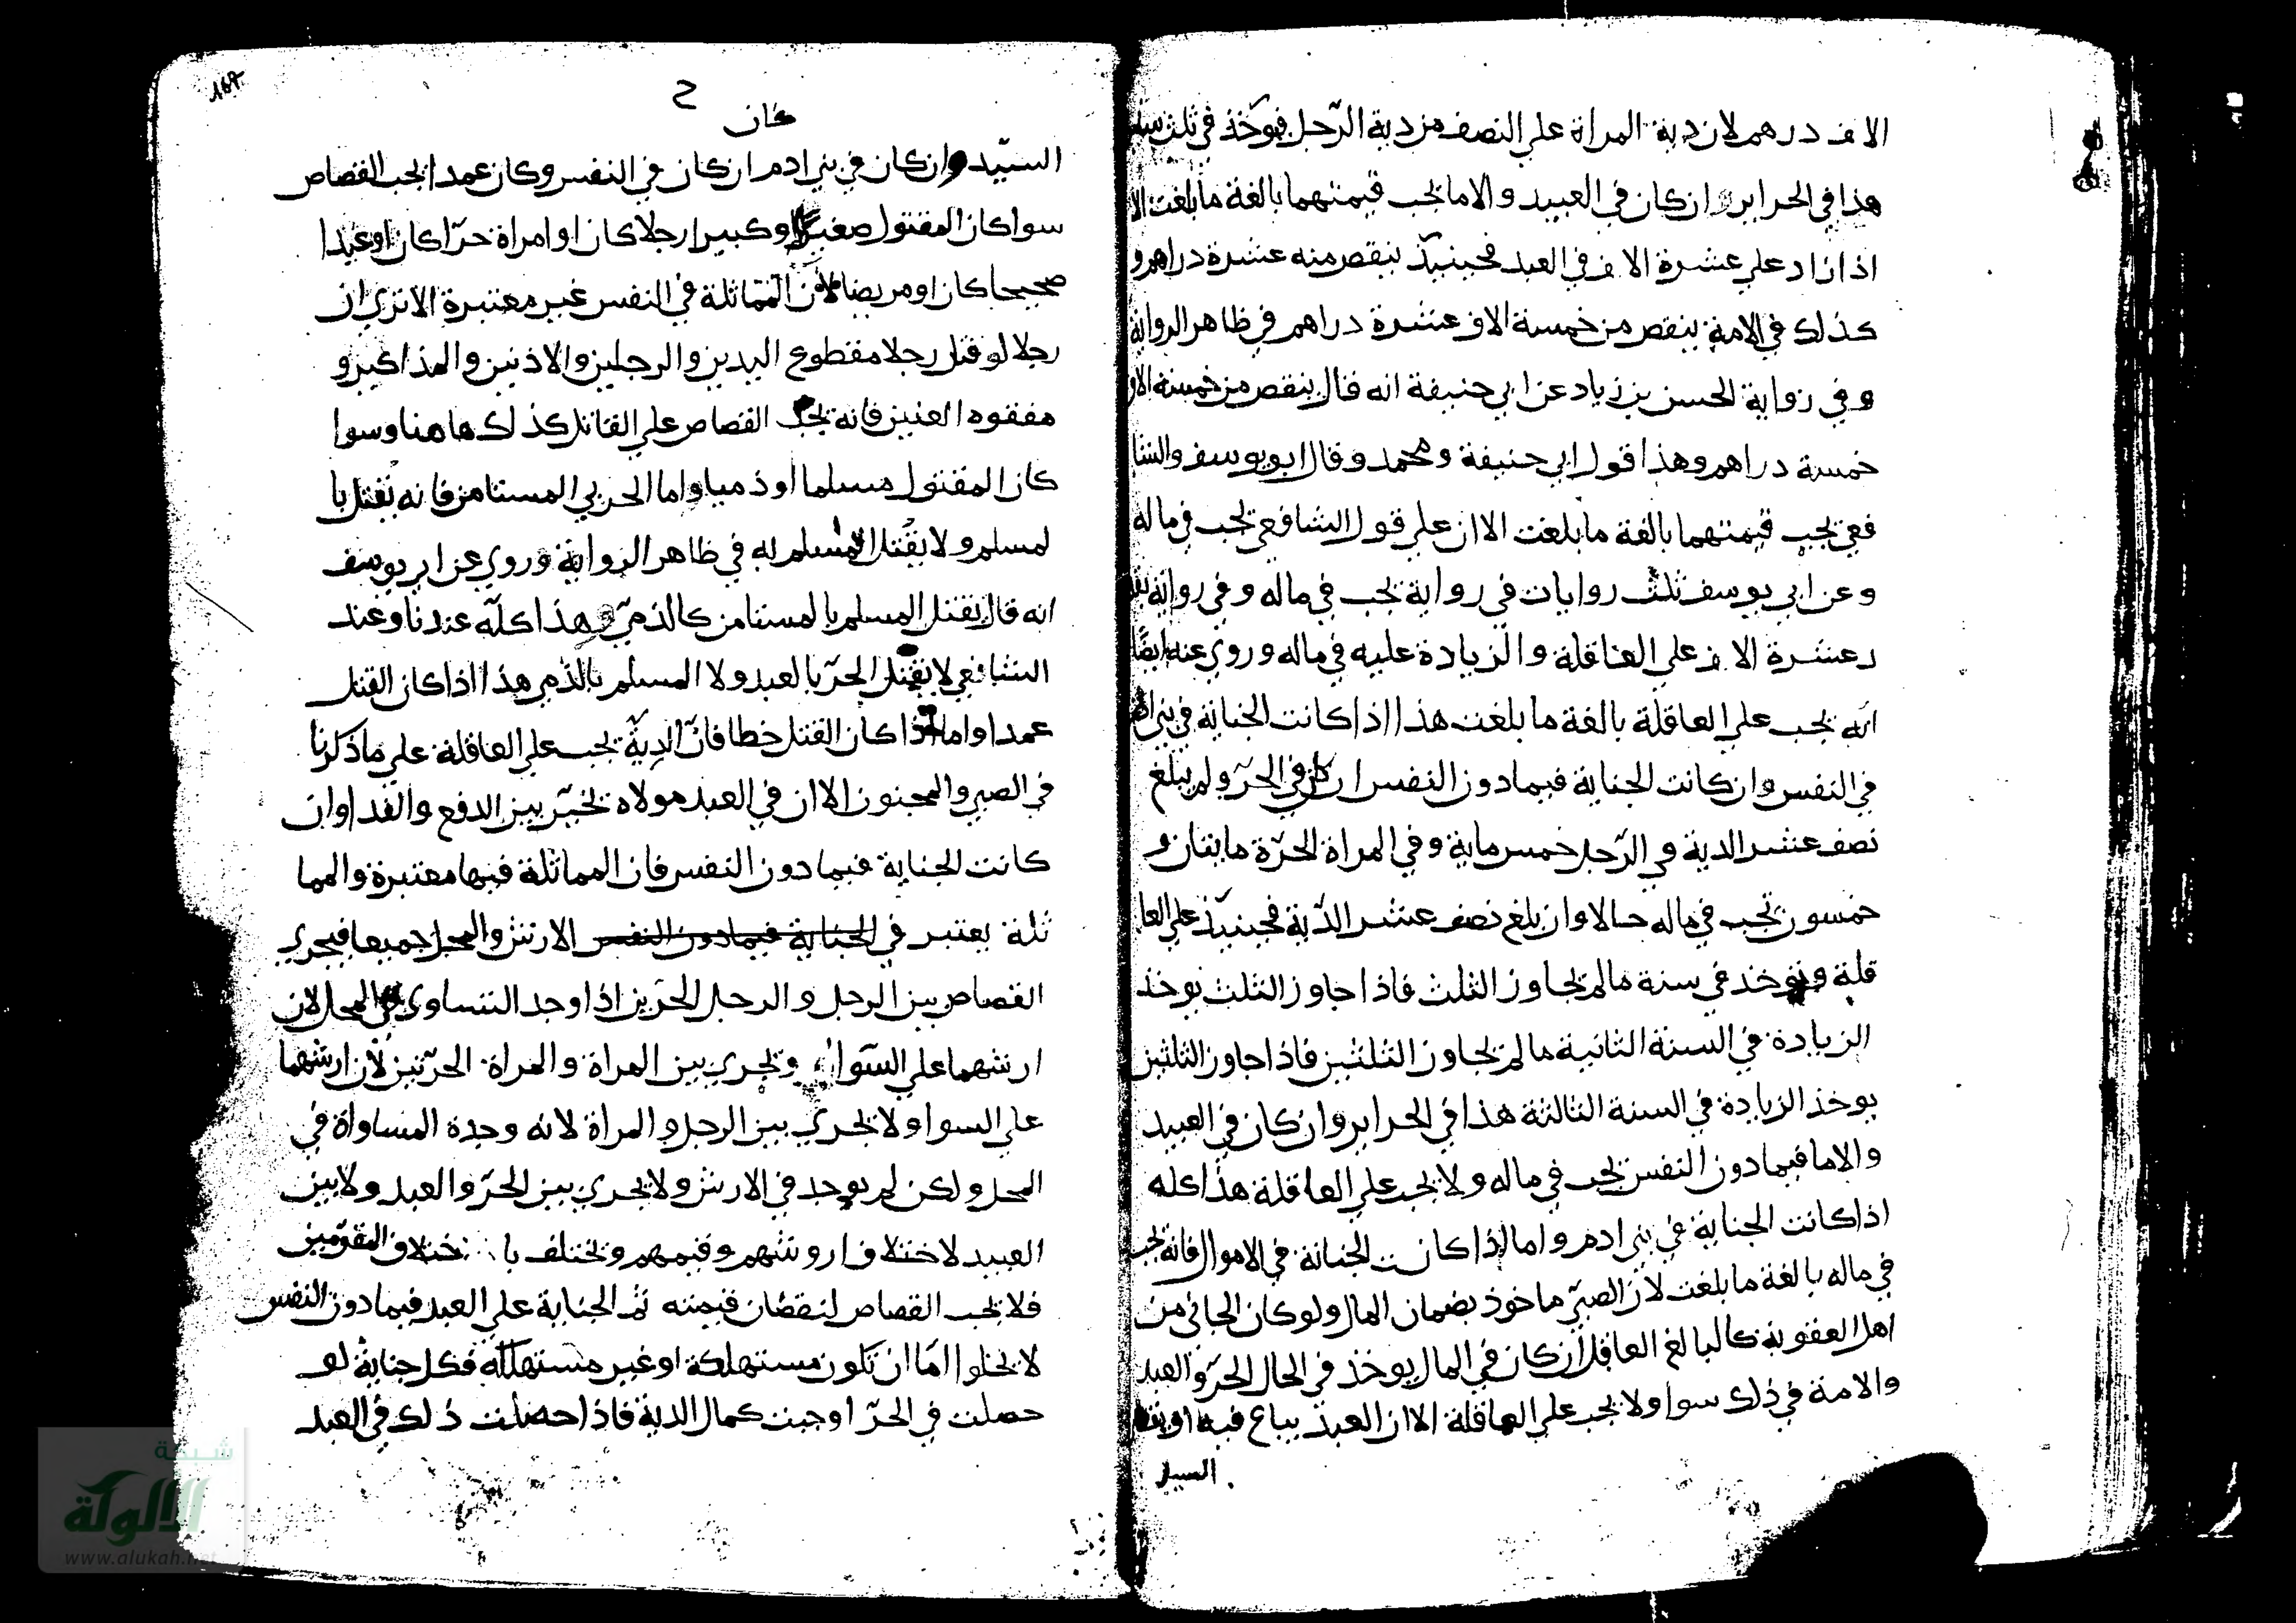 الاف درهم لان دية المراة علي النصف من دية الرّجل فيوخذ في ثلث سنين
هذا في الحراير وان كان في العبيد والاما يجب قيمتهما بالغة ما بلغت الا
اذا زاد علي عشرة الاف في العبد فحينيذ ينقص منه عشرة دراهم و
كذلك في الامة ينقص من خمسة الاف عشرة دراهم في ظاهر الرواية
و في رواية الحسن بن زياد عن ابي حنيفة انه قال ينقص من خمسة الاف
خمسة دراهم وهذا قول ابي حنيفة ومحمد وقال ابو يوسف والشا
فعي يجب قيمتهما بالغة ما بلغت الا ان علي قول الشافعي يجب في ماله
وعن ابي يوسف ثلث روايات في رواية يجب في ماله وفي رواية
عشرة الاف علي العاقلة والزيادة عليه في ماله وروي عنه ايضا
انّه يجب علي العاقلة بالغة ما بلغت هذا اذا كانت الجناية في بني ادم
في النفس وان كانت الجناية فيما دون النفس ان كان في الحرّ ولم يبلغ
نصف عشر الدية وفي الرّجل خمس ماية وفي المراة الحرّة مايتان و
خمسون يجب في ماله حالا وان بلغ نصف عشر الدّية فحينيذ علي العا
قلة ويوخذ في سنة ما لم يجاوز الثلث فاذا جاوز الثلث يوخذ
الزيادة في السنة الثانية ما لم يجاوز الثلثين فاذا جاوز الثلثين
يوخذ الزيادة في السنة الثالثة هذا في الحراير وان كان في العبيد
والاما فيما دون النفس يجب في ماله ولا يجب علي العاقلة هذا كله
اذا كانت الجناية في بني ادم واما اذا كانت الجناية في الاموال فانه يجب
في ماله بالغة ما بلغت لان الصبيّ ماخوذ بضمان المال ولو كان الجاني من
اهل العقوبة كالبالغ العاقل ان كان في المال يوخذ في الحال الحرّ والعبد
والامة في ذلك سوا ولا يجب علي العاقلة الا ان العبد يباع فيه او
السيد
ح
كان
السيّد وان كان في بني ادم ان كان في النفس وكان عمدا يجب القصاص
سوا كان المقتول صغيرا او كبيرا رجلا كان او امراة حرّا كان او عبدا
صحيحا كان او مريضا لان المماثلة في النفس غير معتبرة الا تري ان
رجلا لو قتل رجلا مقطوع اليدين والرجلين والاذنين والمذاكير و
مفقوه العنين فانه يجب القصاص علي القاتل كذلك هاهنا وسوا
كان المقتول مسلما او ذميا واما الحربي المستامن فانه يقتل با
لمسلم ولا يقتل المسلم به في ظاهر الرواية وروي عن ابي يوسف
انه قال يقتل المسلم بالمستامن كالذميّ وهذا كلّه عندنا وعند
الشافعي لا يقتل الحرّ بالعبد ولا المسلم بالذمي هذا اذا كان القتل
عمدا واما اذا كان القتل خطا فانّ الدية يجب علي العاقلة علي ما ذكرنا
في الصبي والمجنون الا ان في العبد مولاه يخيّر بين الدفع والفدا وان
كانت الجناية فيما دون النفس فان المماثلة فيها معتبرة والمما
ثلة يعتبر في الجناية فيما دون النفس الارش والمحل جميعا فيجري
القصاص بين الرجل والرجل الحرّين اذا وجد التساوي في المحل لان
ارشهما علي السّوا ويجري بين المراة والمراة الحرّتين لان ارشهما
علي السوا ولا يجري بين الرجل والمراة لانه وجدة المساواة في
المحل ولكن لم يوجد في الارش ولا يجري بين الحرّ والعبد ولا بين
العبيد لاختلاف اروشهم وقيمهم ويختلف باختلاف المقوّمين
فلا يجب القصاص لنقصان قيمته ثم الجناية علي العبد فيما دون النفس
لا يخلوا امّا ان تكون مستهلكة او غير مستهلكة فكل جناية لو
حصلت في الحرّ اوجبت كمال الدية فاذا حصلت ذلك في العبد
شبكة
الالوكة
www.alukah.net